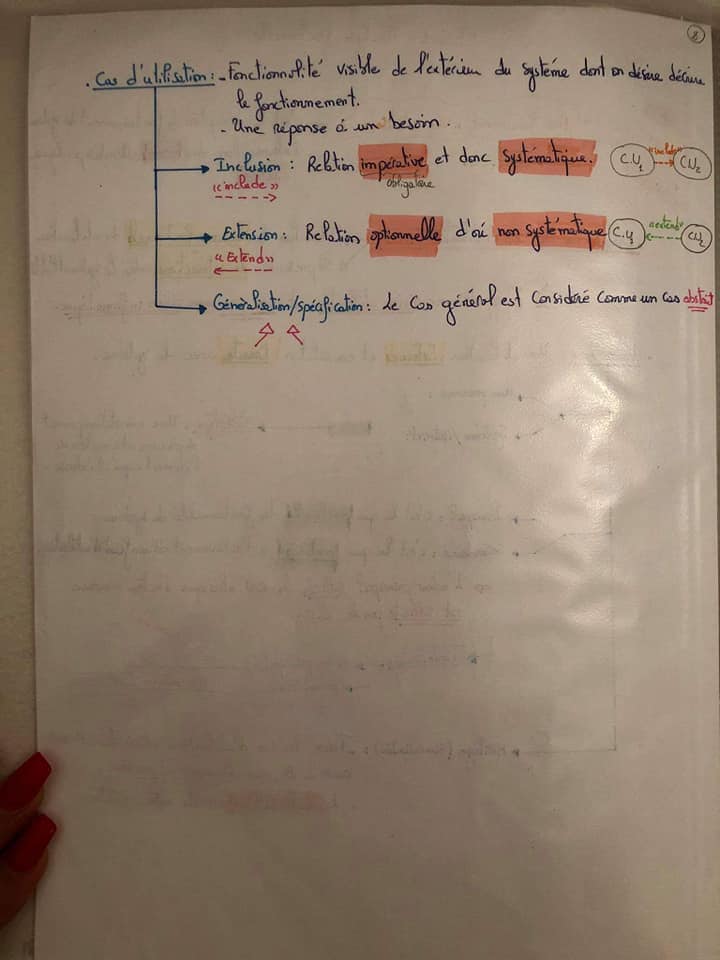 8
. Cas d'utilisation : - Fonctionnalité visible de l'extérieur du système dont on désire décrire
le fonctionnement.
- Une réponse à un besoin.
Inclusion : Relation impérative et donc systématique. C.U1 "include" C.U2
« include » obligatoire
Extension : Relation optionnelle d'où non systématique C.U1 "extend" C.U2
« Extend »
Généralisation/Spécification : Le Cas général est Considéré Comme un cas abstrait